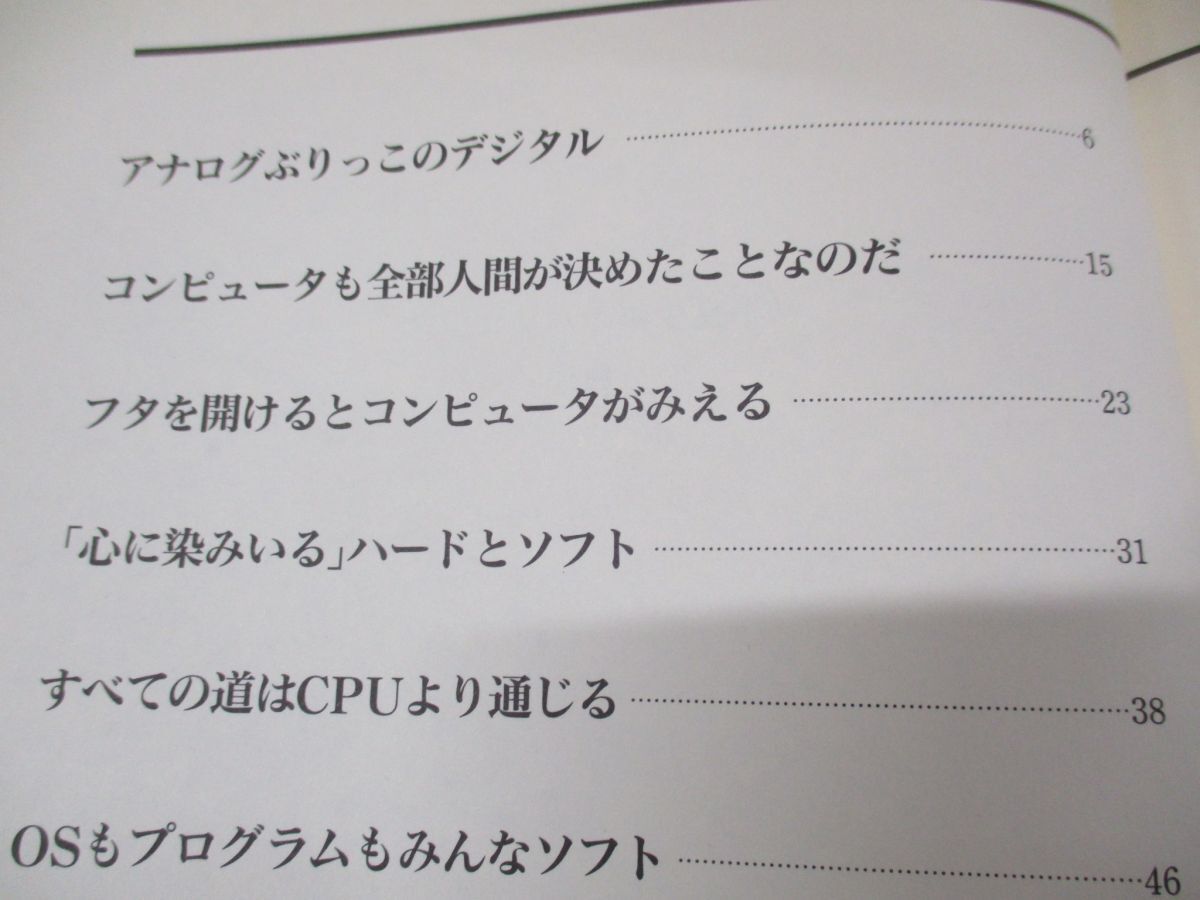 アナログぶりっこのデジタル ……………… 6
コンピュータも全部人間が決めたことなのだ ……………… 15
フタを開けるとコンピュータがみえる ……………… 23
「心に染みいる」ハードとソフト ……………… 31
すべての道はCPUより通じる ……………… 38
OSもプログラムもみんなソフト ……………… 46